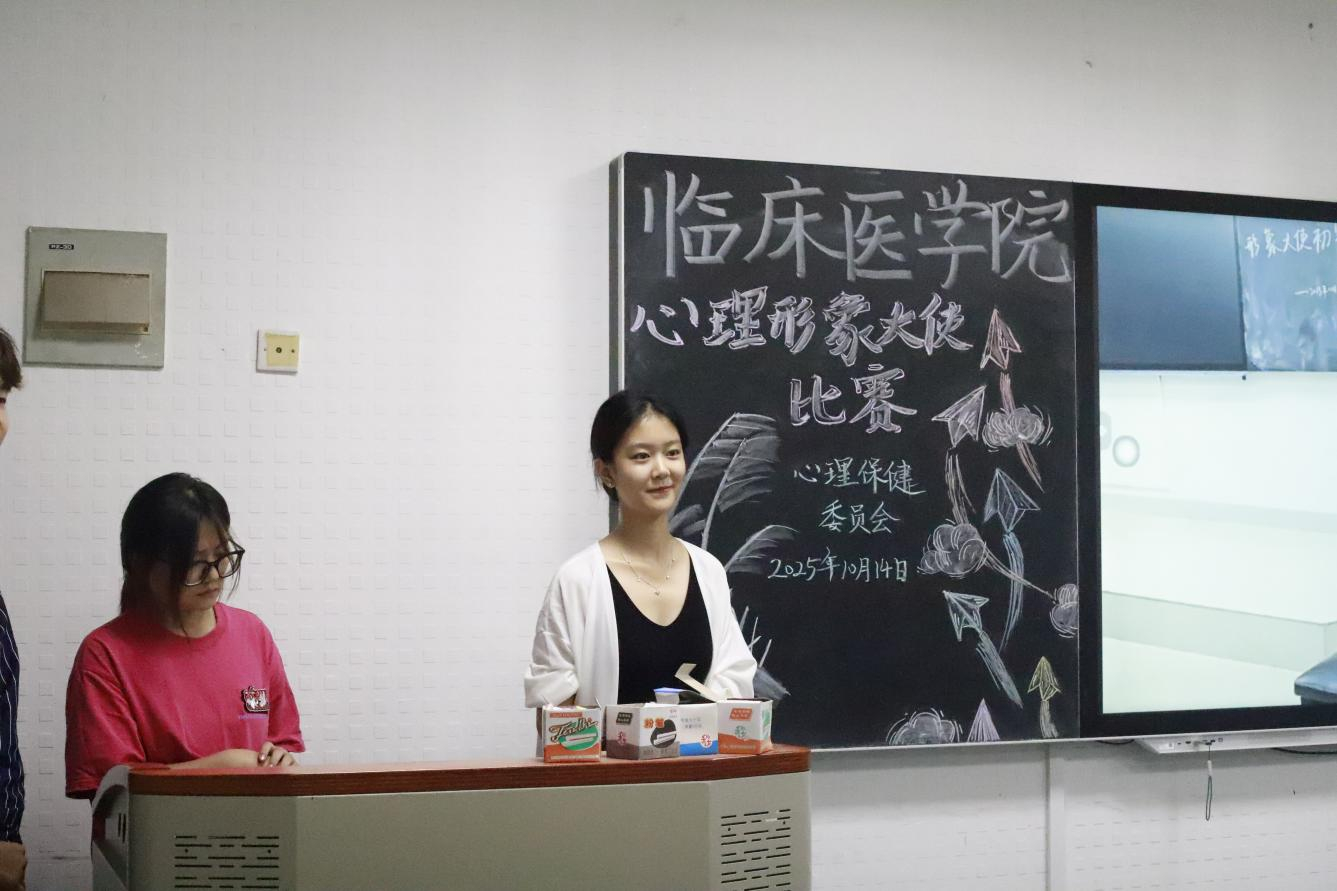 临床医学院
心理形象大使
比赛
心理保健
委员会
2025年10月14日
形象大使初
粉笔